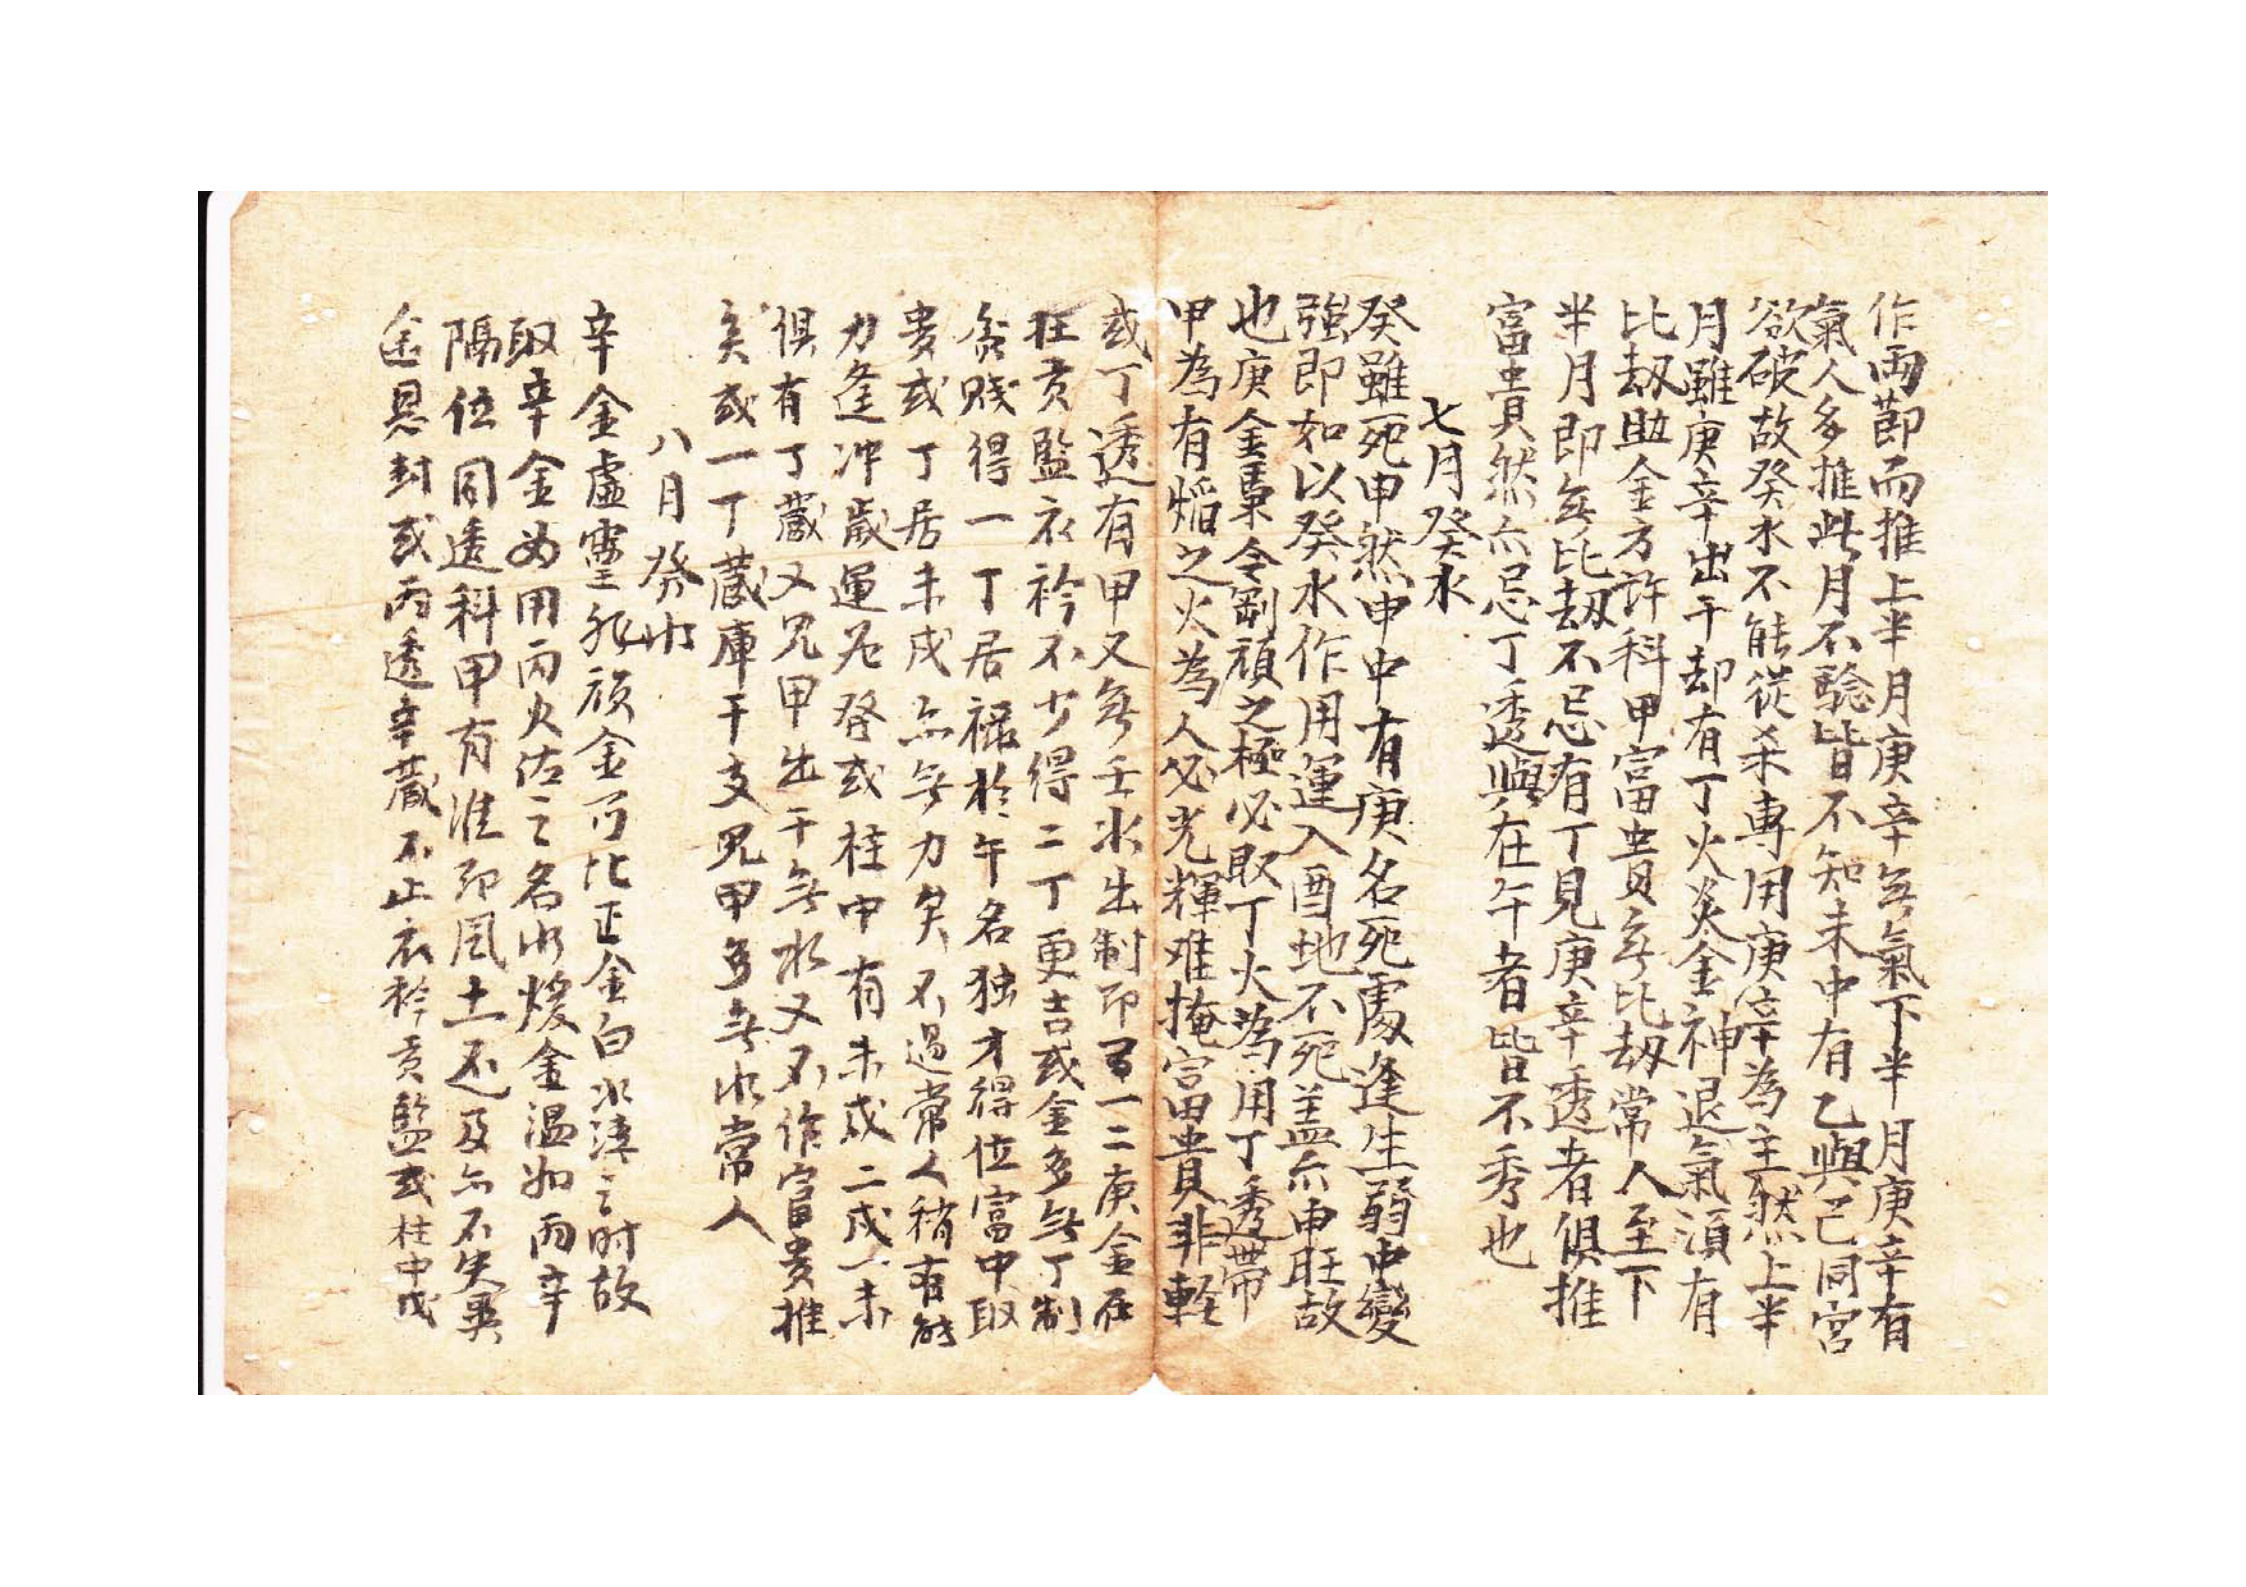 作兩節而推上半月庚辛無氣下半月庚辛有
氣人多推此月不驗皆不知未中有乙與己同宮
欲破故癸水不能從杀專用庚辛為主然上半
月雖庚辛出干却有丁火炎金神退氣須有
比刼助金方許科甲富貴無比刼常人至下
半月即無比刼不忌有丁見庚辛透者俱推
富貴然亦忌丁透與在午者皆不秀也
七月癸水
癸雖死申然申中有庚名死處逢生弱中變
強即如以癸水作用運入酉地不死盖亦申旺故
也庚金秉令剛頑之極必取丁火為用丁透帶
甲為有焰之火為人必光輝难掩富貴非輕
或丁透有甲又無壬水出制即有一二庚金在
柱貢監衣衿不少得二丁更吉或金多無丁制
貧賤得一丁居祿於午名独才得位富中取
貴或丁居未戌亦無力矣不過常人稍有能
力逢冲歲運尼發或柱中有未戌二戌一未
俱有丁藏又見甲出干無水又不作富貴推
矣或一丁藏庫干支見甲多無水常人
八月癸水
辛金虛靈非頑金可比正金白水清之时故
取辛金為用丙火佐之名水煖金温如丙辛
隔位同透科甲有准即風土不及亦不失異
途恩封或丙透辛藏不止衣衿貢監或柱中戊